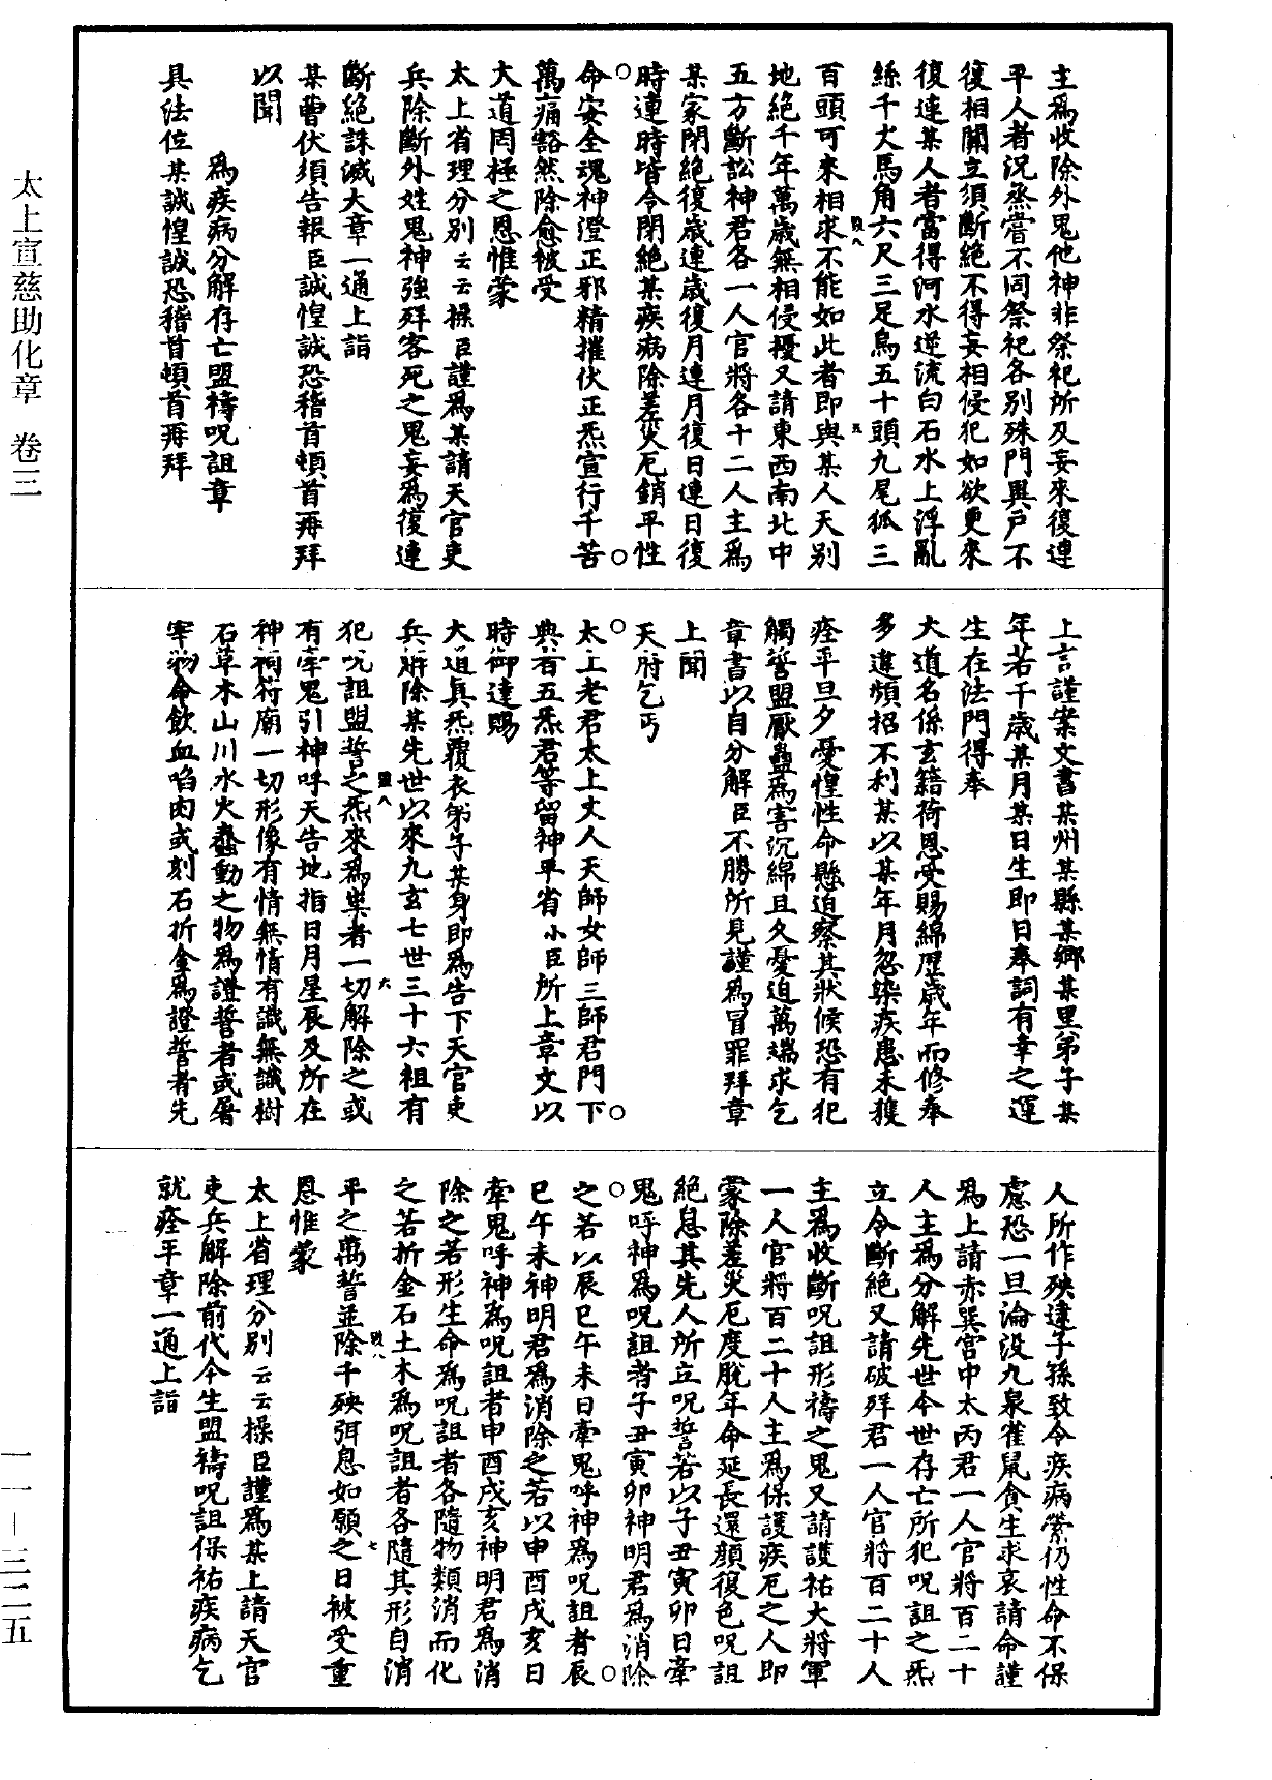 太上宣慈助化章 卷三
一一—三二五
主爲收除外鬼他神非祭祀所及妄來復連
平人者況烝嘗不同祭祀各別殊門異戶不
復相關立須斷絕不得妄相侵犯如欲更來
復連某人者當得河水逆流白石水上浮亂
絲千丈馬角六尺三足烏五十頭九尾狐三
百頭可來相求不能如此者即與某人天別
地絕千年萬歲無相侵擾又請東西南北中
五方斷訟神君各一人官將各十二人主爲
某家閉絕復歲連歲復月連月復日連日復
時連時皆令閉絕某疾病除差災厄銷平性
命安全魂神澄正邪精摧伏正炁宣行千苦
萬痛豁然除愈被受
大道罔極之恩惟蒙
太上省理分別云云操臣謹爲某請天官吏
兵除斷外姓鬼神強殍客死之鬼妄爲復連
斷絕誅滅大章一通上詣
某曹伏須告報臣誠惶誠恐稽首頓首再拜
以聞
爲疾病分解存亡盟禱呪詛章
具法位某誠惶誠恐稽首頓首再拜
上言謹案文書某州某縣某鄉某里弟子某
年若干歲某月某日生即日奉詞有幸之運
生在法門得奉
大道名係玄籍荷恩受賜綿歷歲年而修奉
多違頻招不利某以某年月忽染疾患未獲
痊平旦夕憂惶性命懸迫察其狀候恐有犯
觸誓盟厭蠱爲害沉綿且久憂迫萬端求乞
章書以自分解臣不勝所見謹爲冒罪拜章
上聞
天府乞丐
太上老君太上丈人天師女師三師君門下
典者五炁君等留神平省小臣所上章文以
時御達賜
大道真炁覆衣弟子某身即爲告下天官吏
兵解除某先世以來九玄七世三十六祖有
犯呪詛盟誓之炁來爲祟者一切解除之或
有牽鬼引神呼天告地指日月星辰及所在
神祠符廟一切形像有情無情有識無識樹
石草木山川水火蠢動之物爲證誓者或屠
宰物命飲血啗肉或刻石折金爲證誓者先
人所作殃逮子孫致令疾病縈仍性命不保
慮恐一旦淪沒九泉雀鼠貪生求哀請命謹
爲上請赤巽宮中太丙君一人官將百二十
人主爲分解先世今世存亡所犯呪詛之炁
立令斷絕又請破殍君一人官將百二十人
主爲收斷呪詛形禱之鬼又請護祐大將軍
一人官將百二十人主爲保護疾厄之人即
蒙除差災厄度脫年命延長還顏復色呪詛
絕息其先人所立呪誓若以子丑寅卯日牽
鬼呼神爲呪詛者子丑寅卯神明君爲消除
之若以辰巳午未日牽鬼呼神爲呪詛者辰
巳午未神明君爲消除之若以申酉戌亥日
牽鬼呼神爲呪詛者申酉戌亥神明君爲消
除之若形生命爲呪詛者各隨物類消而化
之若折金石土木爲呪詛者各隨其形自消
平之萬誓並除千殃弭息如願之日被受重
恩惟蒙
太上省理分別云云操臣謹爲某上請天官
吏兵解除前代今生盟禱呪詛保祐疾病乞
就痊平章一通上詣